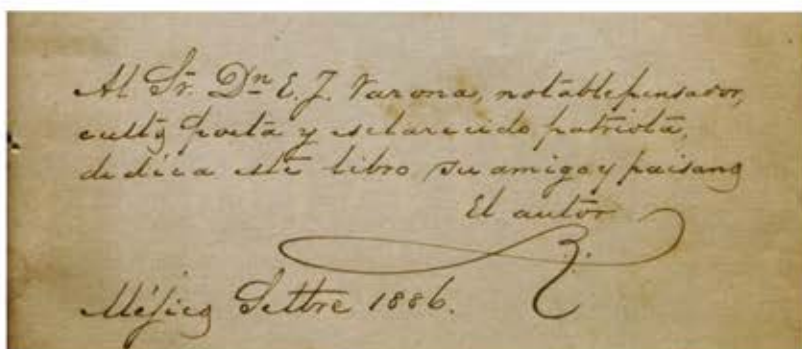 Al Sr. Dn E. J. Varona, notable pensador,
culto poeta y esclarecido patriota,
dedica este libro su amigo y paisano
El autor
Z.
Méjico Setbre 1886.